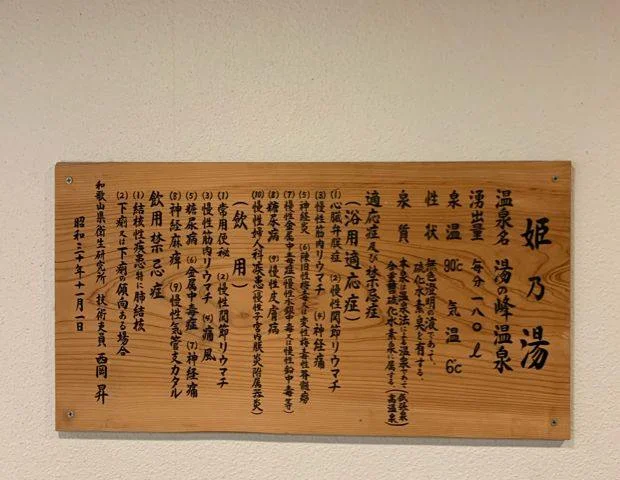 姫乃湯
温泉名 湯の峰温泉
湧出量 毎分 一八〇ℓ
泉温 90℃ 気温 6℃
性状 無色澄明の液であって、
硫化水素臭を有する。
泉質 本泉は温泉法による温泉であって
含食塩硫化水素泉に属する。(低張泉)(高温泉)
適応症及び禁忌症
(浴用適応症)
(1)心臓弁膜症 (2)慢性関節リウマチ
(3)慢性筋肉リウマチ (4)神経痛
(5)神経炎 (6)陳旧性梅毒又は変性梅毒性脊髄癆
(7)慢性金属中毒症(慢性水銀中毒又は慢性鉛中毒等)
(8)糖尿病 (9)慢性皮膚病
(10)慢性婦人科疾患(慢性子宮内膜炎附属器炎)
(飲用)
(1)常用便秘 (2)慢性関節リウマチ
(3)慢性筋肉リウマチ (4)痛風
(5)糖尿病 (6)金属中毒症 (7)神経痛
(8)神経麻痺 (9)慢性気管支カタル
飲用禁忌症
(1)結核性疾患特に肺結核
(2)下痢又は下痢の傾向ある場合
和歌山県衛生研究所 技術吏員 西岡昇
昭和三十年十一月一日